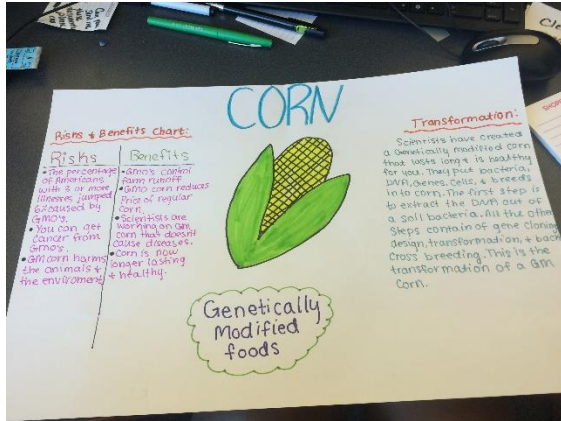 CORN
Risks & Benefits Chart:
Risks
• The percentage
of Americans
with 3 or more
illnesses jumped
6% caused by
GMO's.
• You can get
cancer from
GMO's.
• GM corn harms
the animals &
the enviroment
Benefits
• GMO's control
farm runoff
• GMO corn reduces
Price of regular
corn.
• Scientists are
working on GM
corn that doesnt
cause diseases.
• Corn is now
longer lasting
& healthy.
Genetically
Modified
foods
Transformation:
Scientists have created
a Genetically modified corn
that lasts long & is healthy
for you. They put bacteria,
DNA, Genes, Cells, & breeds
in to corn. The first step is
to extract the DNA out of
a soil bacteria. All the other
steps contain of gene cloning
design, transformation, & back
cross breeding. This is the
transformation of a GM
Corn.